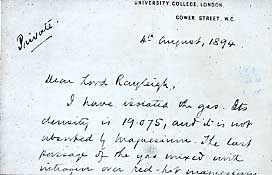 UNIVERSITY COLLEGE, LONDON.
GOWER STREET, W.C.
Private.
4th August, 1894.
Dear Lord Rayleigh,
I have isolated the gas. Its
density is 19.075, and it is not
absorbed by magnesium. The last
passage of the gas mixed with
nitrogen over red-hot magnesium